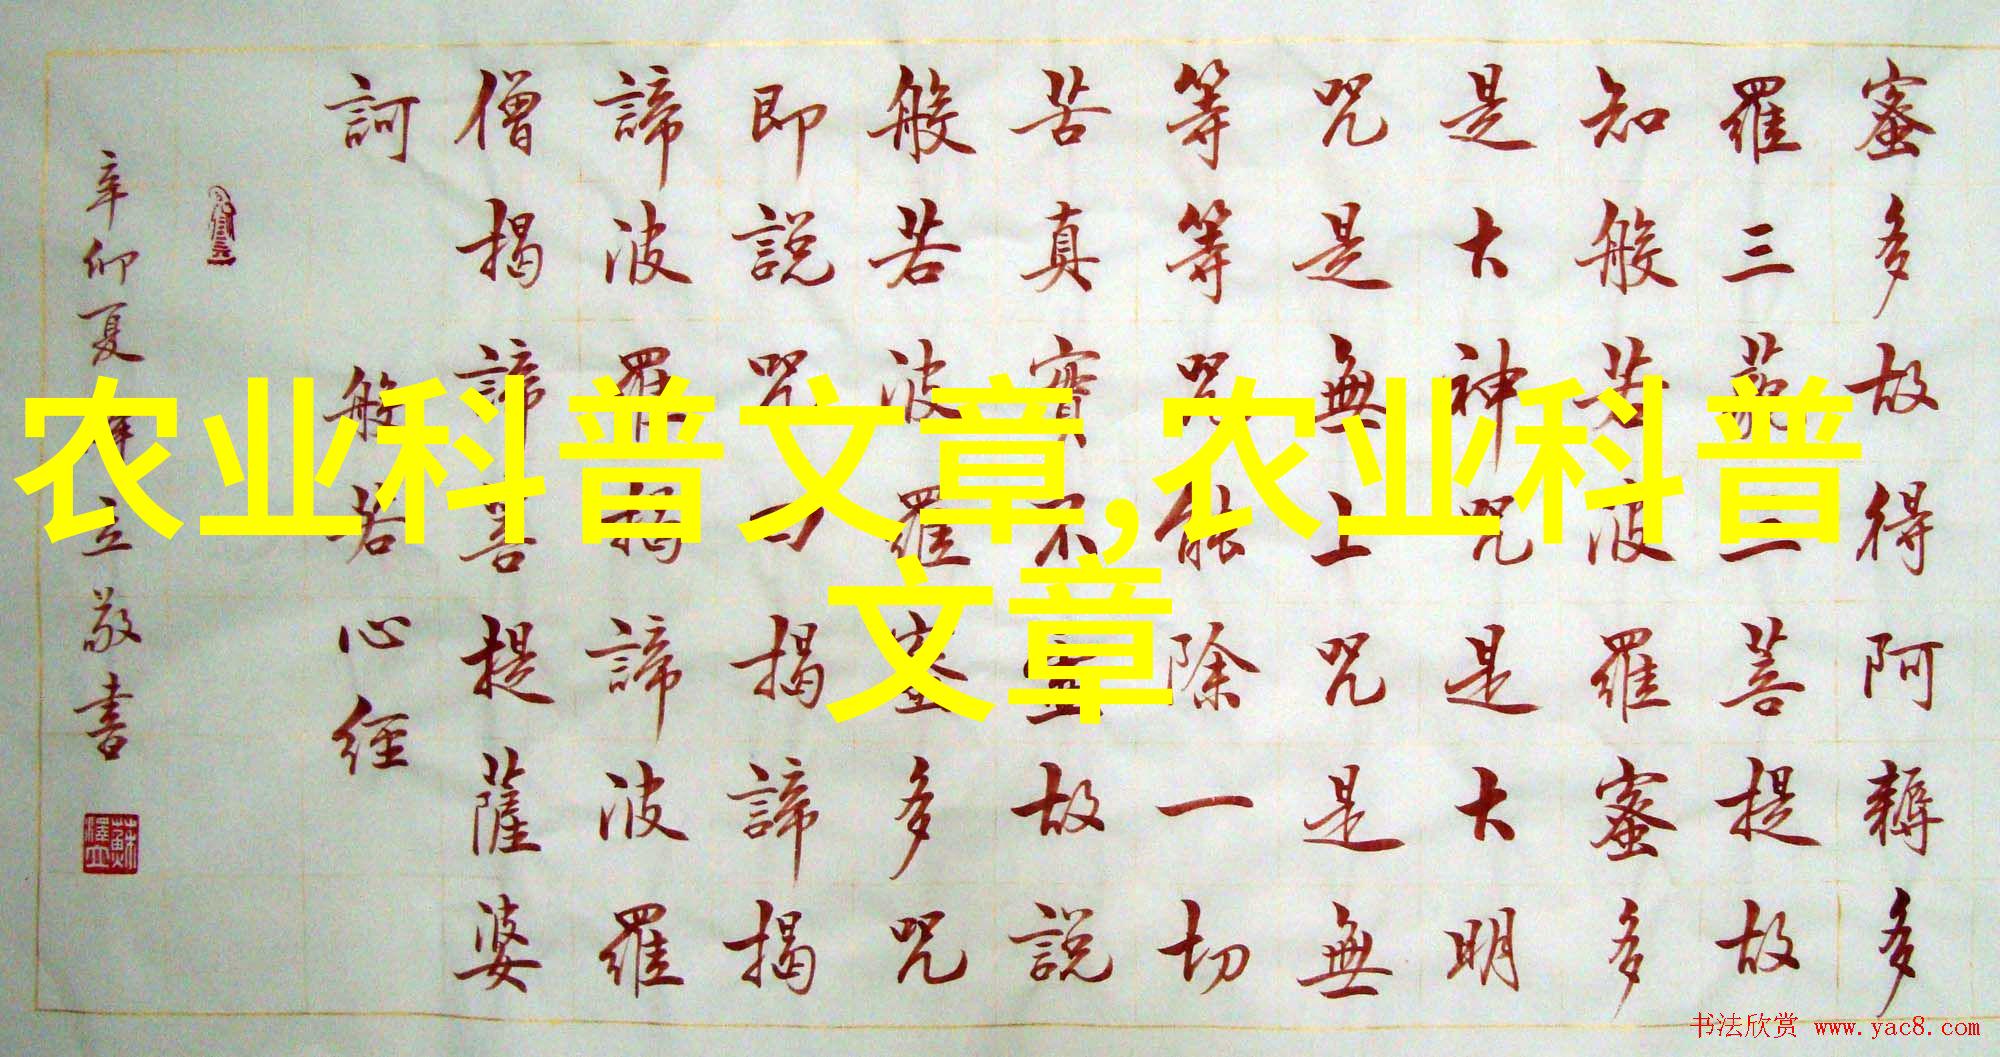 农业科普文章,农业科普
文章
蜜多故得阿耨多
羅三藐三菩提故
知般若波羅蜜多
是大神咒是大明
咒是無上咒是無
等等咒能除一切
苦真實不虛故說
般若波羅蜜多咒
即說咒曰揭諦揭
諦波羅揭諦波羅
僧揭諦菩提薩婆
訶 般若心經
辛卯夏澤立敬書
蘇澤立
书法欣赏 www.yac8.com